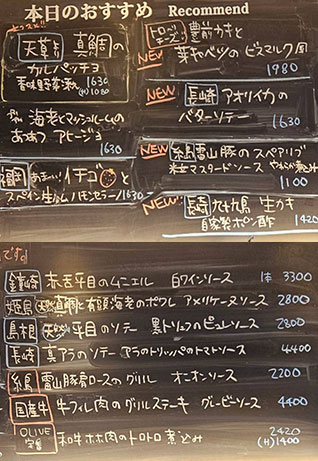 本日のおすすめ Recommend
天草 真鯛の
カルパッチョ
香味野菜添え 1630
(H)1080
海老とマッシュルームの
あつあつ アヒージョ
1630
あまーい! イチゴと
スペイン生ハム ハモンセラーノ 1630
豊前カキと
NEW 芽キャベツの ビスマルク風
1980
NEW 長崎 アオリイカの
バターソテー 1630
NEW 糸島 雷山豚のスペアリブ
粒マスタードソース やわらか煮込み
1100
NEW! 長崎 九十九島 生カキ
自家製ポン酢 1420
です♪
赤舌平目のムニエル 白ワインソース 1本 3300
姫島 天然真鯛と有頭海老のポワレ アメリケーヌソース 2800
島根 天然平目のソテー 黒トリュフのピュレソース 2800
長崎 真アラのソテー アラのトリッパのトマトソース 4400
糸島 雷山豚肩ロースのグリル オニオンソース 2200
国産牛 牛フィレ肉のグリルステーキ グレービーソース 4400
OLIVE
定番 和牛ホホ肉のトロトロ煮込み 2420
(H)1400